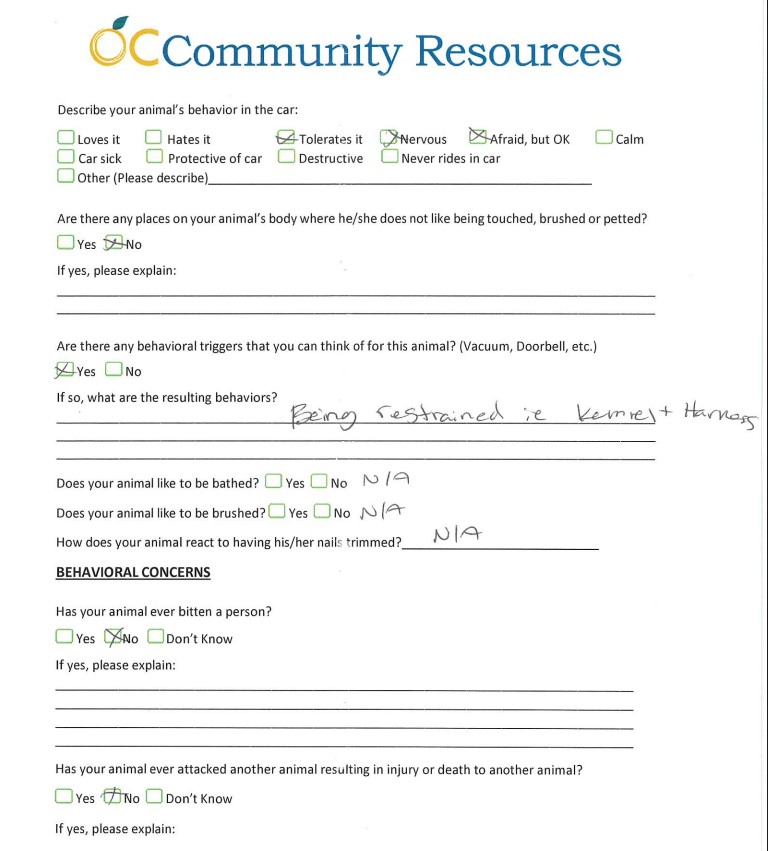 OC Community Resources
Describe your animal's behavior in the car:
Loves it Hates it Tolerates it Nervous Afraid, but OK Calm
Car sick Protective of car Destructive Never rides in car
Other (Please describe)
Are there any places on your animal's body where he/she does not like being touched, brushed or petted?
Yes No
If yes, please explain:
Are there any behavioral triggers that you can think of for this animal? (Vacuum, Doorbell, etc.)
Yes No
If so, what are the resulting behaviors?
Being restrained ie Kennel + Harness
Does your animal like to be bathed? Yes No N/A
Does your animal like to be brushed? Yes No N/A
How does your animal react to having his/her nails trimmed? N/A
BEHAVIORAL CONCERNS
Has your animal ever bitten a person?
Yes No Don't Know
If yes, please explain:
Has your animal ever attacked another animal resulting in injury or death to another animal?
Yes No Don't Know
If yes, please explain: